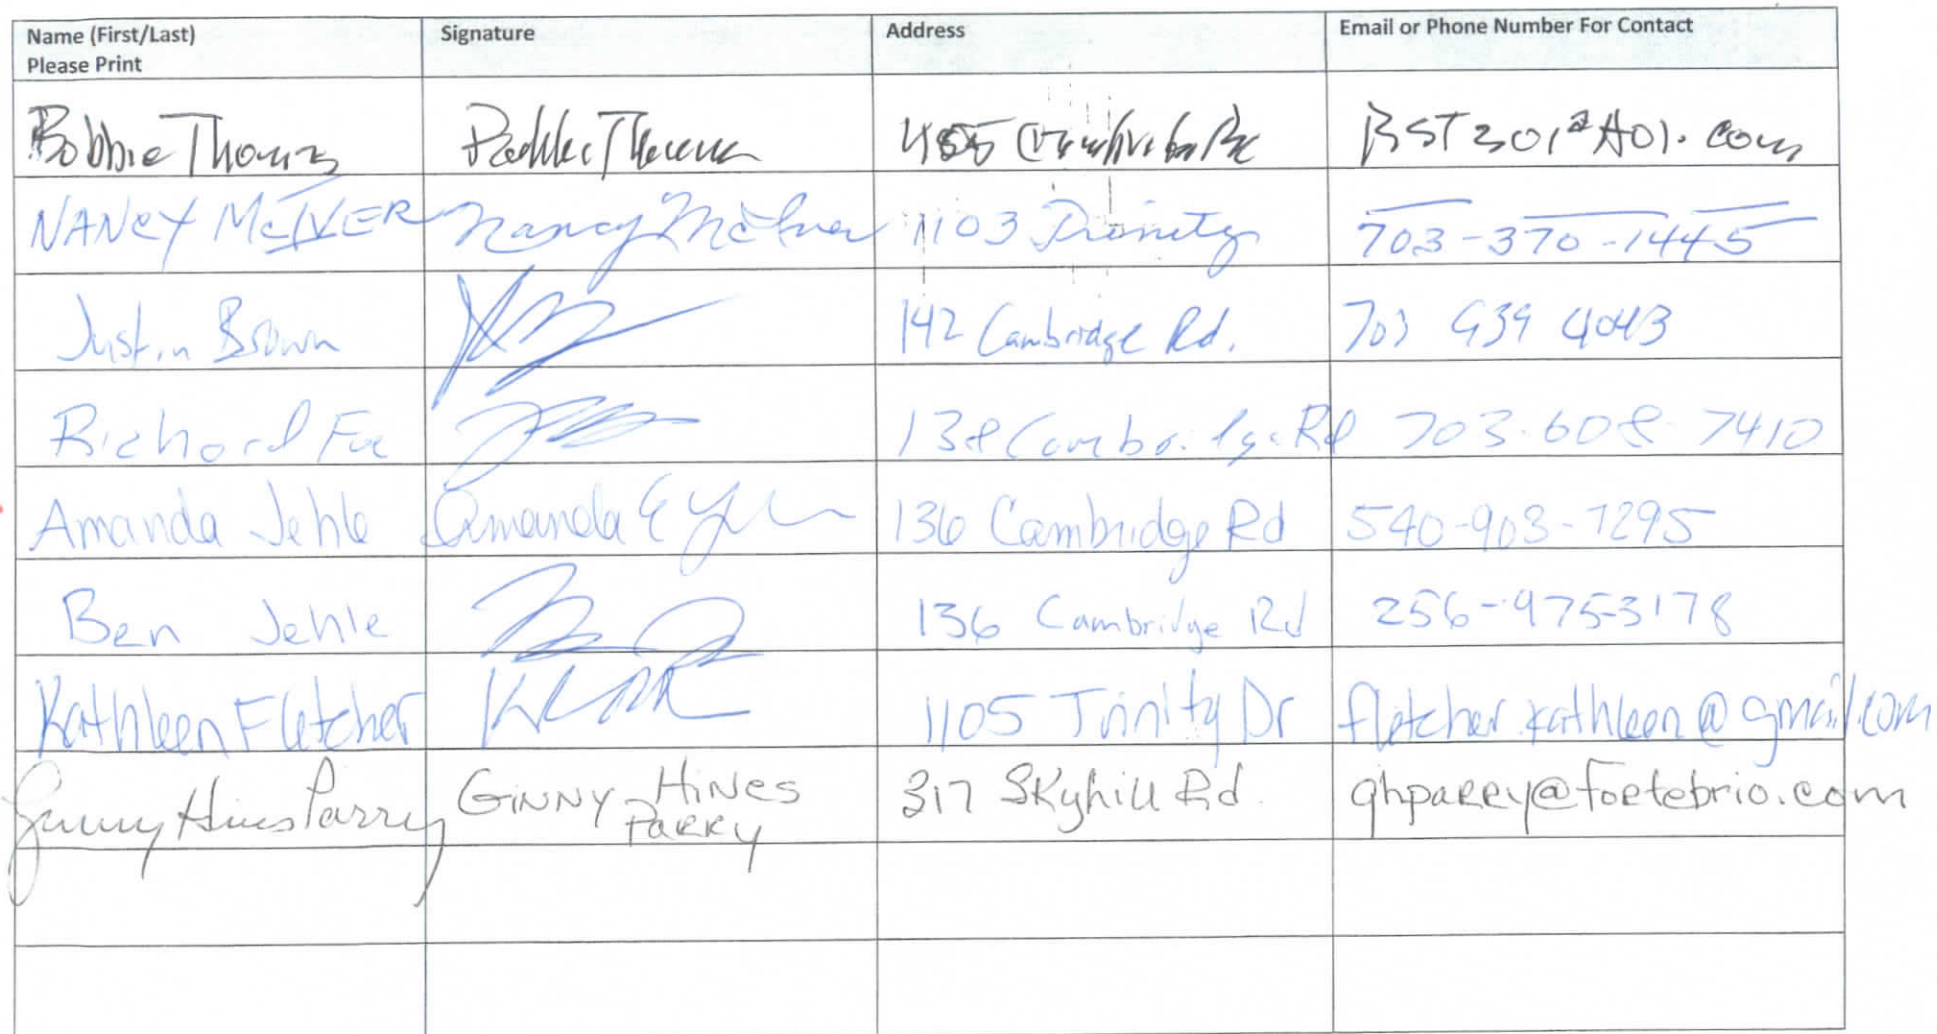 Name (First/Last) Signature Address Email or Phone Number For Contact
Please Print
Bobbie Thomas BST301@AOl.com
NANCY McIVER Nancy McIver 1103 Trinity 703-370-1445
Justin Brown 142 Cambridge Rd. 703 939 4043
Richard Foe 138 Cambridge Rd 703-608-7410
Amanda Jehle Amanda E 136 Cambridge Rd 540-903-7295
Ben Jehle 136 Cambridge Rd 256-975-3178
Kathleen Fletcher 1105 Trinity Dr fletcher.kathleen@gmail.com
Ginny Hines Parry GINNY HINES 317 Skyhill Rd. ghparry@fortebrio.com
PARRY